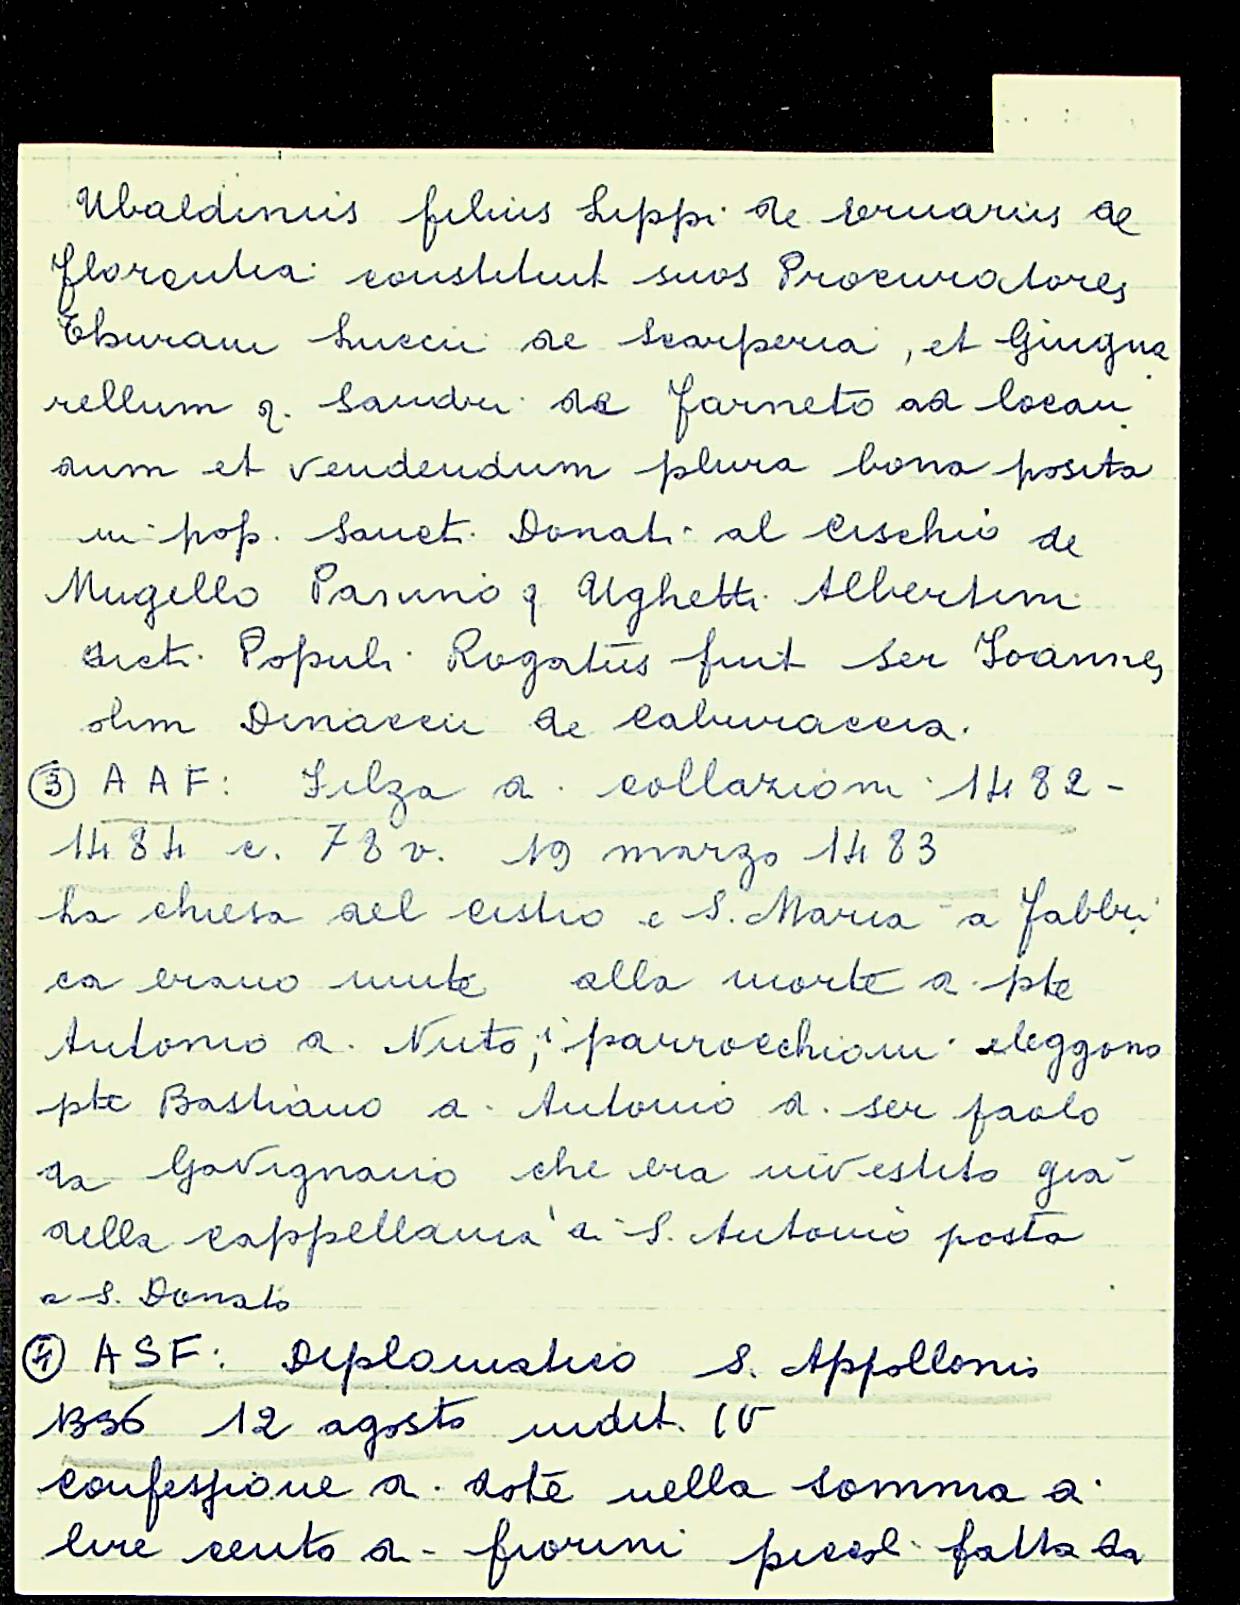 Ubaldinus filius Lippi de de
Florentia constituit suos Procuratores
Luccii de Scarperia, et Giugna
rellum q. Sandri de Farneto ad locan
dum et vendendum plura bona posita
in pop. Sancti Donati al Cischio de
Mugello Pasino q Ughetti Albertini
dicti Populi Rogatus fuit ser Joannes
olim Dinaccii de Caburaccia.
③ AAF: Filza di collazioni 1482-
1484 c. 78v. 19 marzo 1483
La chiesa del Cistio e S. Maria a Fabbri
ca erano unite alla morte di pte
Antonio di Nuto, i parrocchiani eleggono
pte Bastiano di Antonio di ser paolo
da Gavignano che era investito già
della cappellania di S. Antonio posta
a S. Donato
④ ASF: Diplomatico S. Appollonia
1336 12 agosto indit. IV
confessione di dote nella somma di
lire cento di fiorini piccoli fatta da